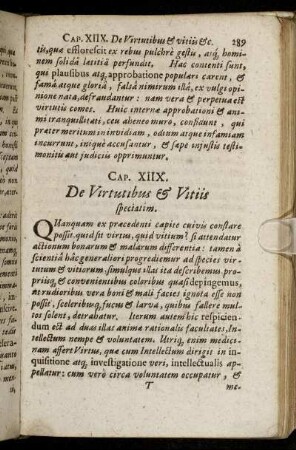 CAP. XIIX. De Virtutibus & vitiis &c. 289
tis, quæ efflorescit ex rebus pulchrè gestis, atq; homi-
nem solidâ lætitiâ perfundit. Hac contenti sunt,
qui plausibus atq; approbatione populari carent, &
famâ atque gloriâ, falsâ nimirum illâ, ex vulgi opi-
nione natâ, defrandantur: nam vera & perpetua est
virtutis comes. Huic internæ approbationi & ani-
mi tranquillitati, ceu aheneo muro, confidunt, qui
præter meritum in invidiam, odium atque infamiam
incurrunt, iniquè accusantur, & sæpe injustis testi-
moniis aut judiciis opprimuntur.
CAP. XIIX.
De Virtutibus & Vitiis
speciatim.
QUanquam ex præcedenti capite cuivis constare
possit, quid sit virtus, quid vitium? si attendatur
actionum bonarum & malarum differentia: tamen à
scientiâ hâc generaliori progrediemur ad species vir-
tutum & vitiorum. simulque illas ita describemus pro-
priis, & convenientibus coloribus quasi depingemus,
ut rudioribus vera boni & mali facies ignota esse non
possit, sceleribusq; fucus & larva, quibus fallere mul-
tos solent, detrabatur. Iterum autem hîc respicien-
dum est ad duas illas animæ rationalis facultates, In-
tellectum nempe & voluntatem. Utriq; enim medici-
nam affert Virtus, quæ cum Intellectum dirigit in in-
quisitione atq; investigatione veri, intellectualis ap-
pellatur: cum verò circa voluntatem occupatur, &
T me-